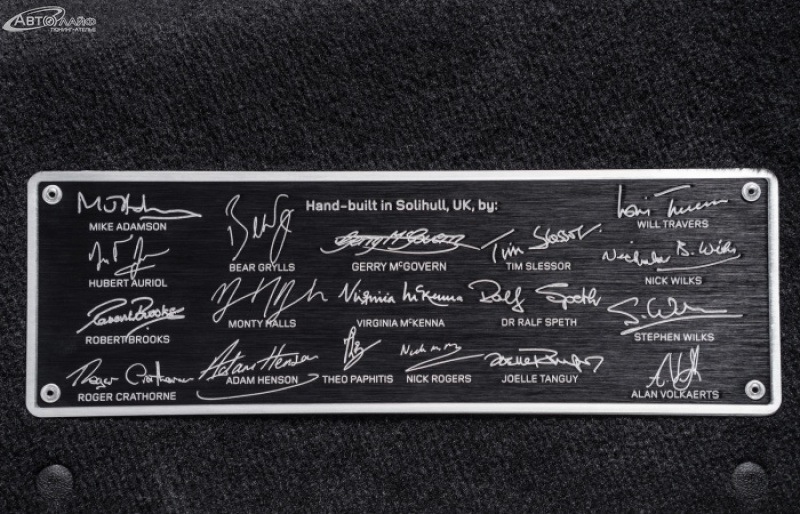 АВТОЛАЙФ
ТЮНИНГ-АТЕЛЬЕ
Hand-built in Solihull, UK, by:
MIKE ADAMSON
BEAR GRYLLS
GERRY McGOVERN
TIM SLESSOR
WILL TRAVERS
HUBERT AURIOL
MONTY HALLS
VIRGINIA McKENNA
DR RALF SPETH
NICK WILKS
ROBERT BROOKS
STEPHEN WILKS
ROGER CRATHORNE
ADAM HENSON
THEO PAPHITIS
NICK ROGERS
JOELLE TANGUY
ALAN VOLKAERTS